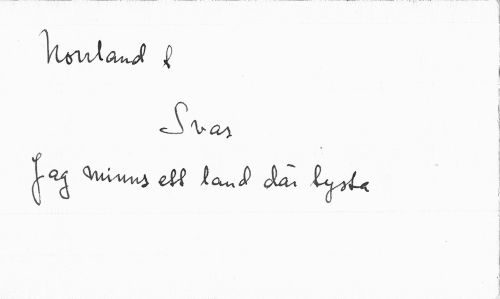 Norrland f
Svar
Jag minns ett land där tysta